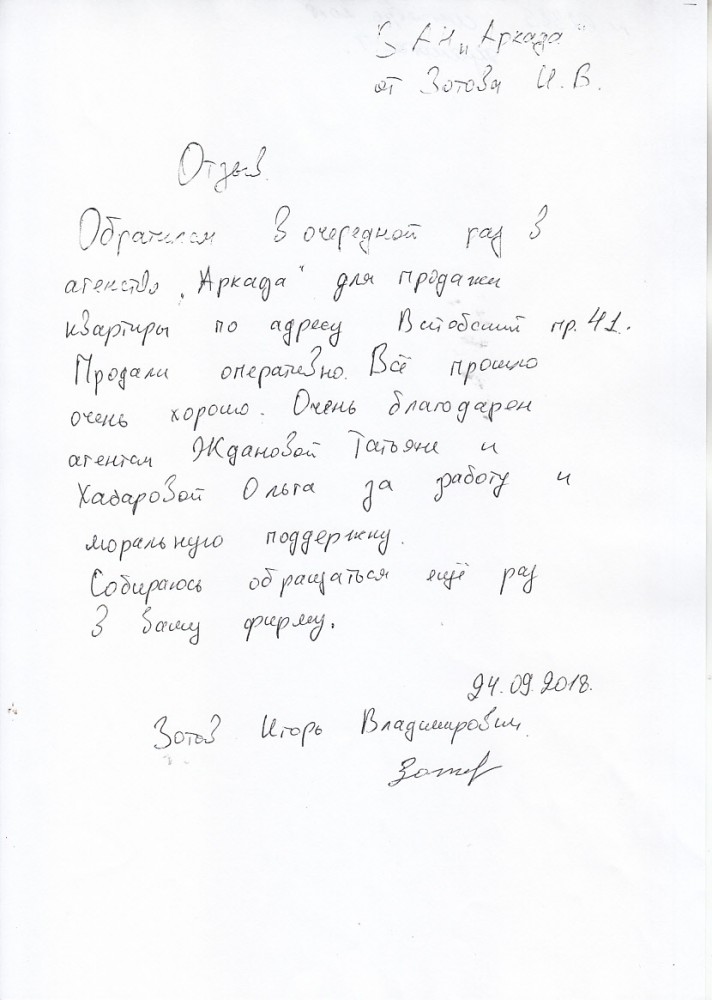 В АН "Аркада"
от Зотова И.В.
Отзыв.
Обратился в очередной раз в
агенство "Аркада" для продажи
квартиры по адресу Витебский пр. 41.
Продали оперативно. Всё прошло
очень хорошо. Очень благодарен
агентам Ждановой Татьяне и
Хабаровой Ольга за работу и
моральную поддержку.
Собираюсь обращаться ещё раз
в вашу фирму.
24.09.2018.
Зотов Игорь Владимирович.
Зотов